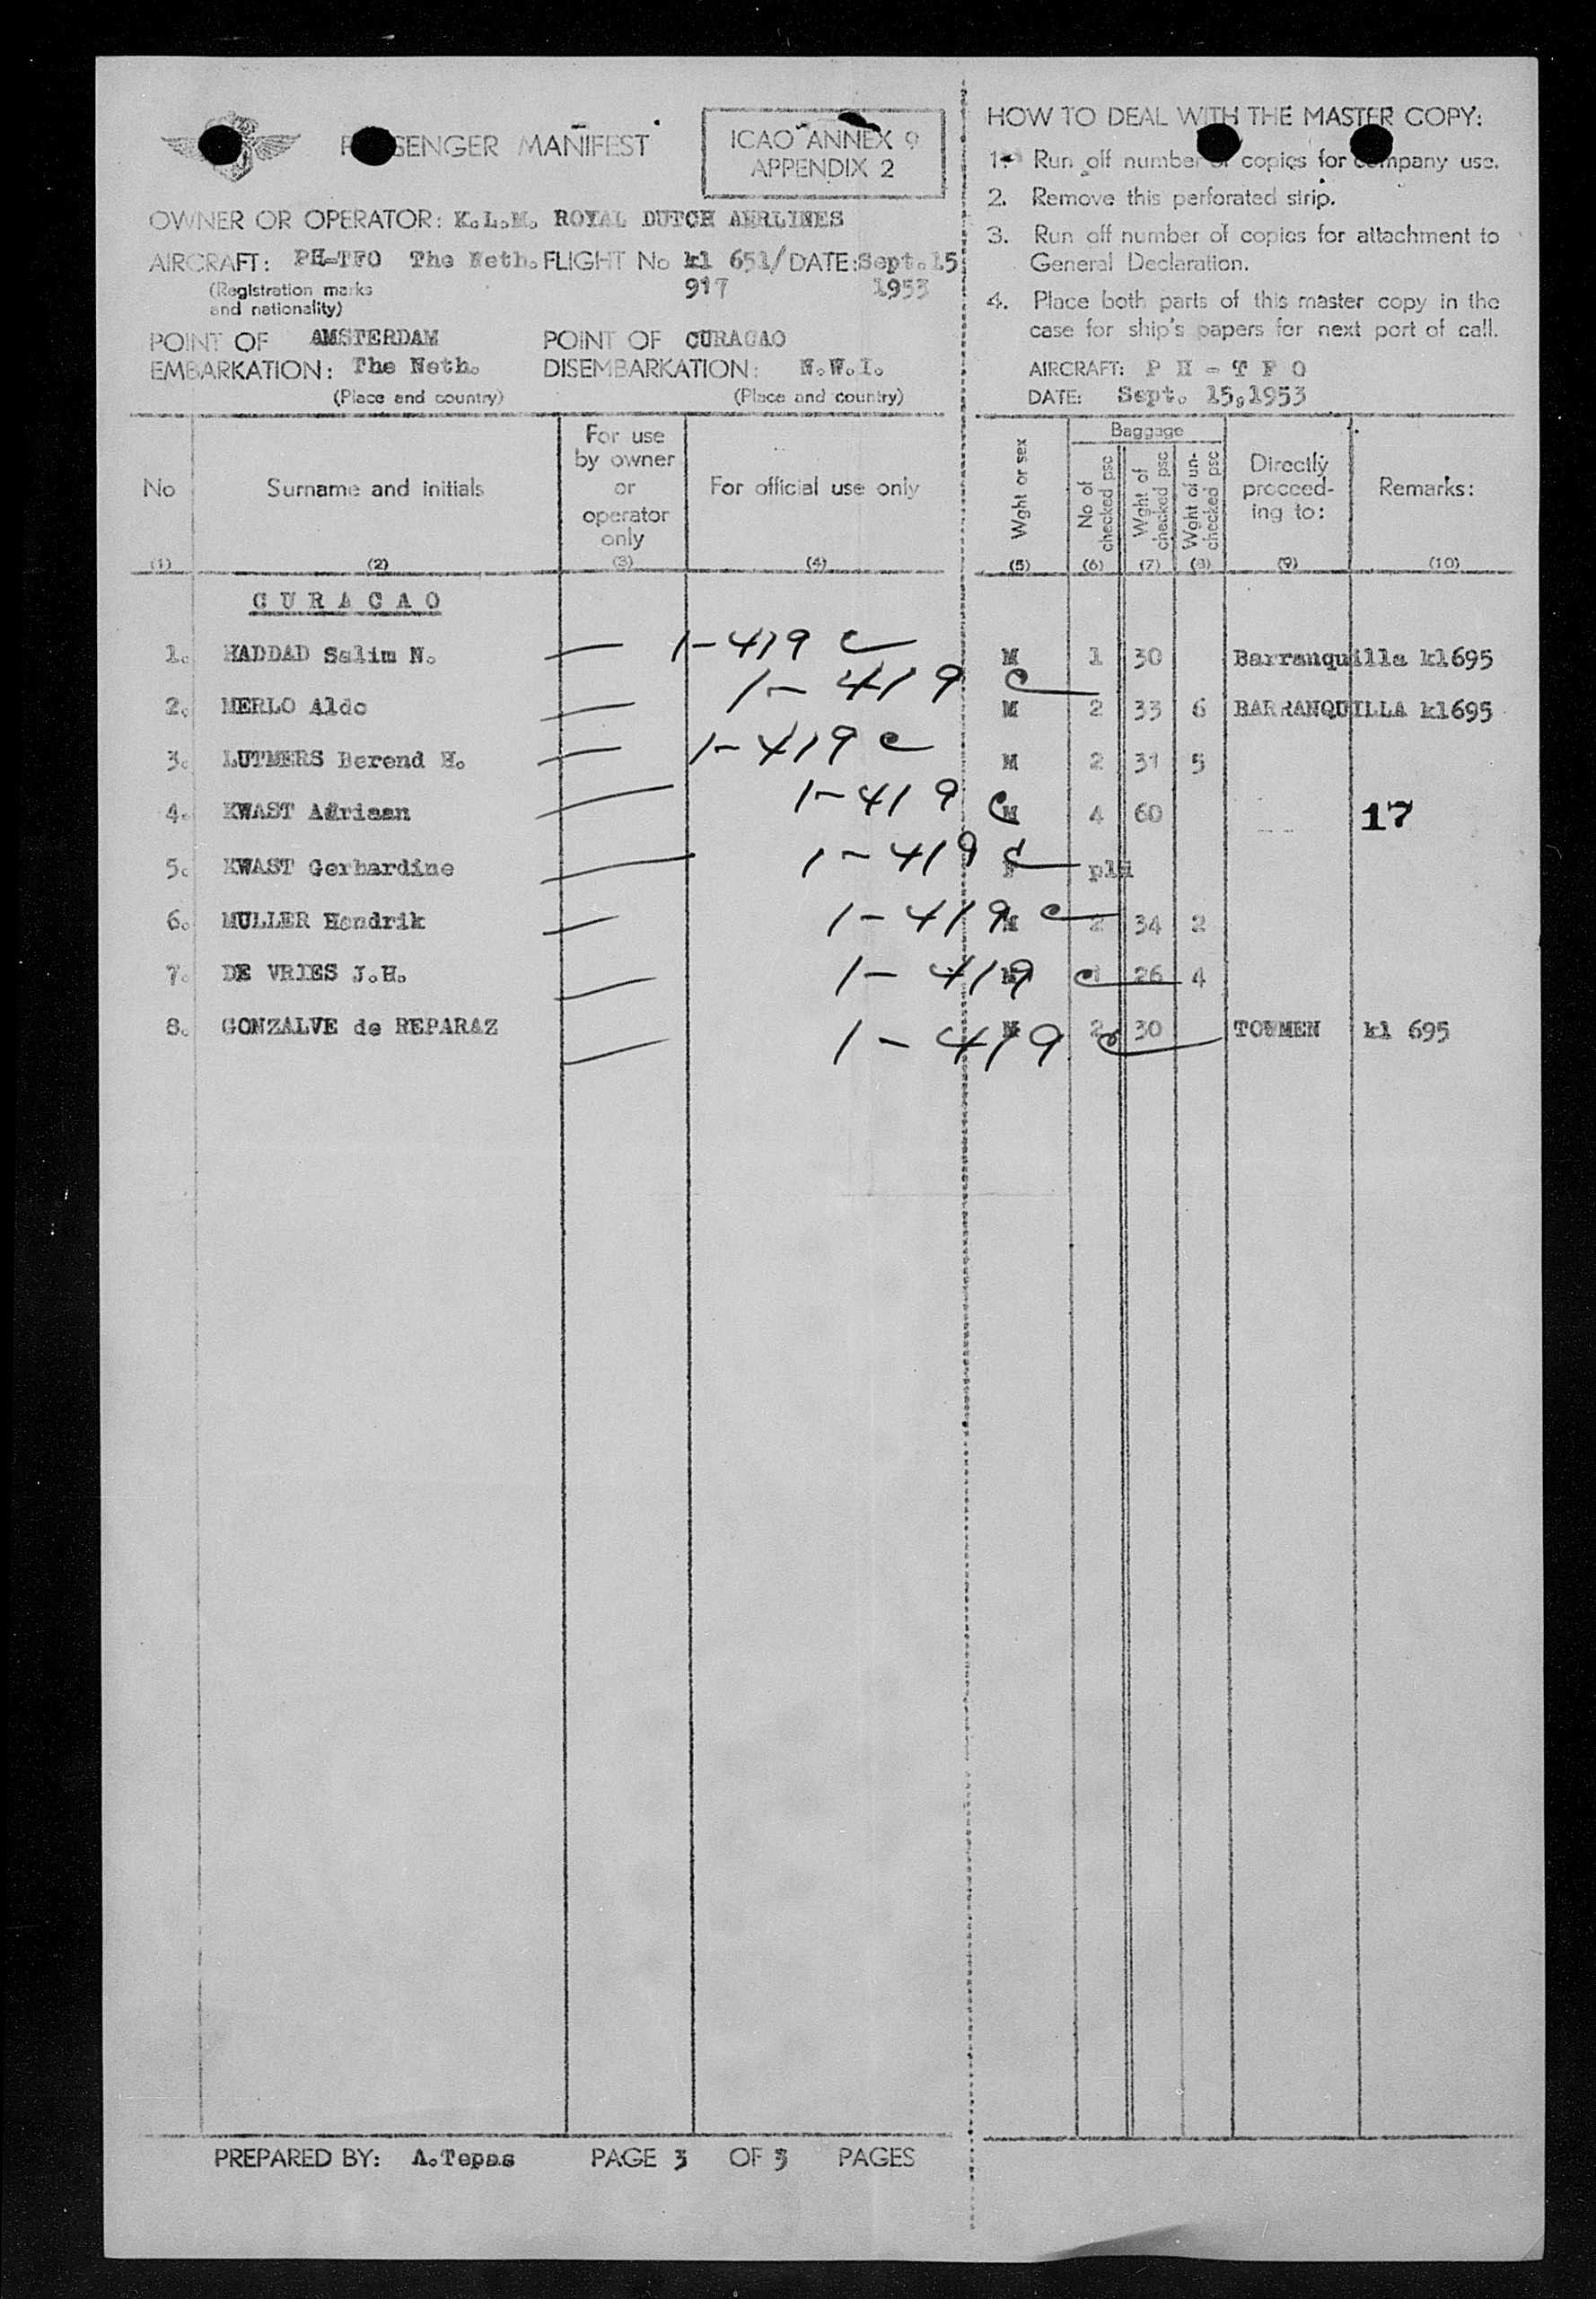 PASSENGER MANIFEST
ICAO ANNEX 9
APPENDIX 2
OWNER OR OPERATOR: K.L.M. ROYAL DUTCH AERLINES
AIRCRAFT: PH-TFO The Neth. FLIGHT No kl 651/ DATE: Sept. 15
(Registration marks 917 1953
and nationality)
POINT OF AMSTERDAM POINT OF CURACAO
EMBARKATION: The Neth. DISEMBARKATION: N.W.I.
(Place and country) (Place and country)
HOW TO DEAL WITH THE MASTER COPY:
1. Run off number of copies for company use.
2. Remove this perforated strip.
3. Run off number of copies for attachment to
General Declaration.
4. Place both parts of this master copy in the
case for ship's papers for next port of call.
AIRCRAFT: P H - T F O
DATE: Sept. 15,1953
No
(1)
Surname and initials
(2)
For use
by owner
or
operator
only
(3)
For official use only
(4)
Wght or sex
(5)
Baggage
No of
checked psc
(6)
Wght of
checked psc
(7)
Wght of un-
checked psc
(8)
Directly
proceed-
ing to:
(9)
Remarks:
(10)
C U R A C A O
1. HADDAD Salim N. — 1-419 c M 1 30 Barranquilla kl695
2. MERLO Aldo — 1-419 c M 2 33 6 BARRANQUILLA kl695
3. LUTMERS Berend H. — 1-419 c M 2 31 5
4. KWAST Adriaan — 1-419 c M 4 60 17
5. KWAST Gerhardine — 1-419 c F
6. MULLER Hendrik — 1-419 c M 2 34 2
7. DE VRIES J.H. — 1-419 c M 1 26 4
8. GONZALVE de REPARAZ — 1-419 c M 2 30 TOUMEN kl 695
PREPARED BY: A.Tepas PAGE 3 OF 3 PAGES